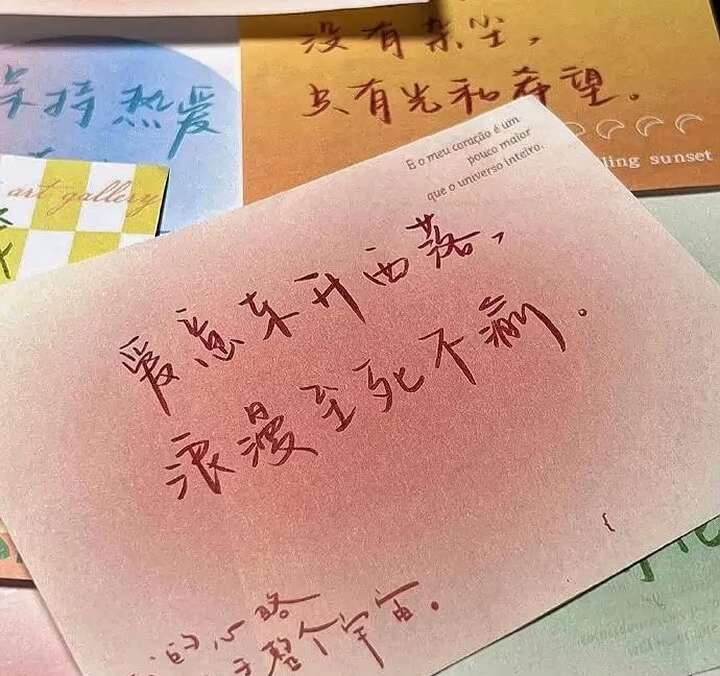 没有杂尘，
只有光和希望。
保持热爱
ling sunset
art gallery
E o meu coração é um
pouco maior
que o universo inteiro.
爱意东升西落，
浪漫至死不渝。
的心略
整个宇宙。